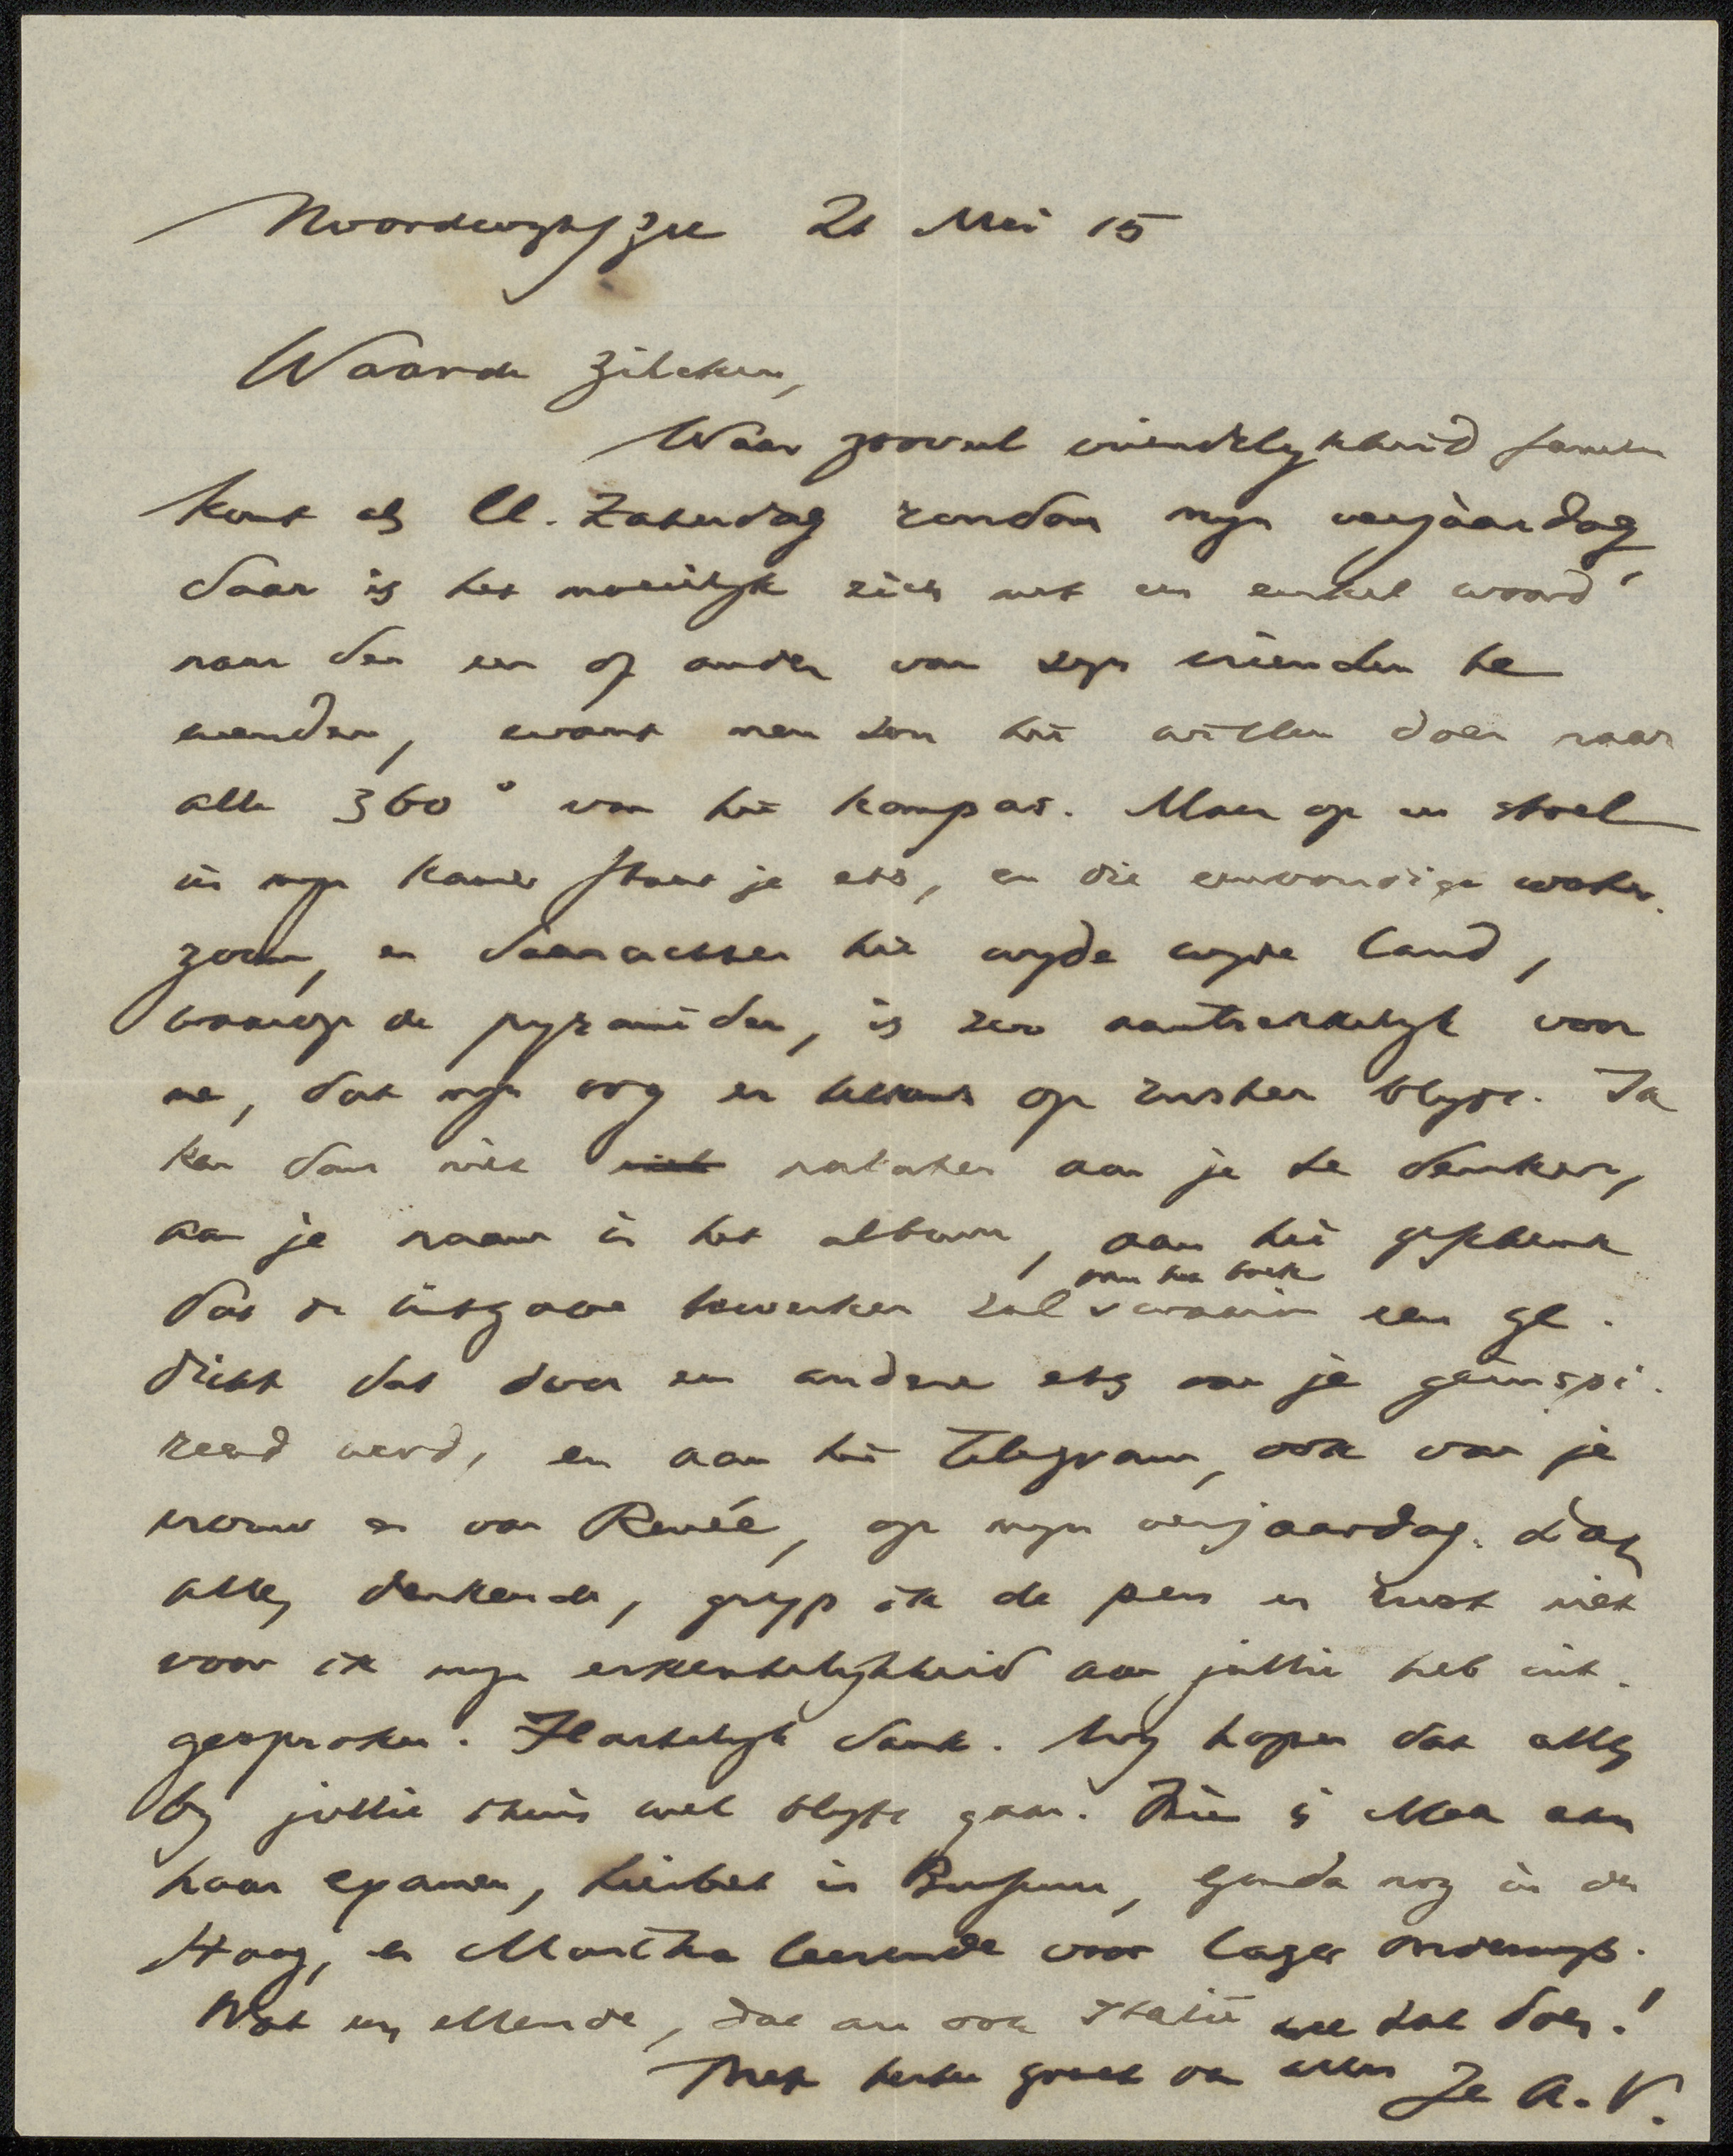 Noordwijk a/zee 21 Mei 15
Waarde Zilcken,
Waar zooveel vriendelykheid samen
komt als ll. Zaterdag rondom myn verjaardag,
daar is het moeilyk zich met een enkel woord
naar den een of ander van zyn vrienden te
wenden, want men zou het willen doen naar
alle 360° van het kompas. Maar op een stoel
in myn kamer staat je ets, en die eenvoudige water-
zoom, en daarachter het wyde wyde land,
waarop de pyramiden, is zoo aantrekkelyk voor
me, dat myn oog er telkens op rusten blyft. Ik
kan dan niet niet nalaten aan je te denken,
aan je naam in het album, aan het geschenk
van het boek
dat de uitgave bewerken zal waarin een ge-
dicht dat door een andere ets van je geïnspi-
reerd werd, en aan het telegram, ook van je
vrouw en van Renée, op myn verjaardag. Dat
alles denkende, gryp ik de pen en rust niet
voor ik myn erkentelykheid aan jullie heb uit-
gesproken. Hartelyk dank. Wy hopen dat alles
by jullie thuis wel blyft gaan. Hier is Mea aan
haar examen, Liesbet in Bussum, Gerda nog in den
Haag, en Martha leerende voor lager onderwys.
Wat een ellende, dat nu ook Italië mee zal doen!
Met beste groet van allen Je A.V.